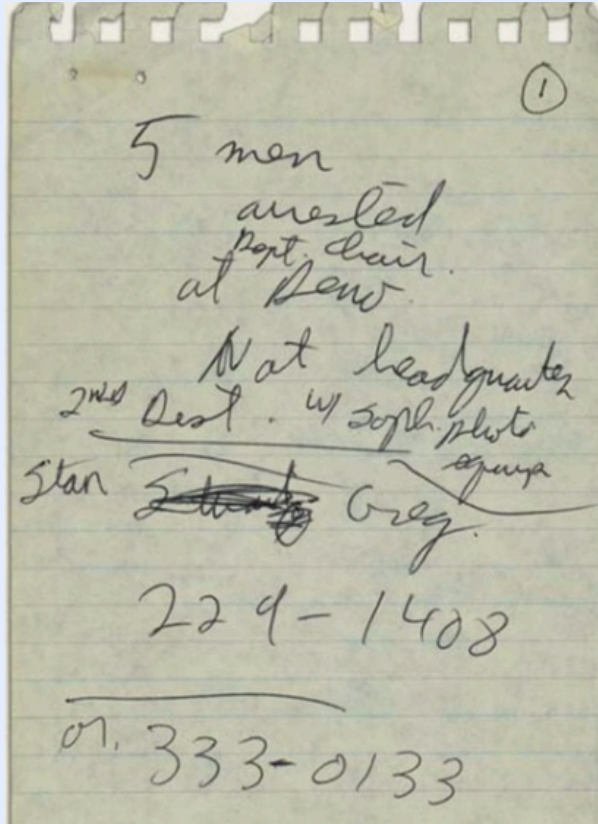 1
5 men
arrested
Dept. Chair.
at Demo.
Nat headquarters
2nd Dist. w/ soph. photo
equip
Stan Greg.
229-1408
or. 333-0133